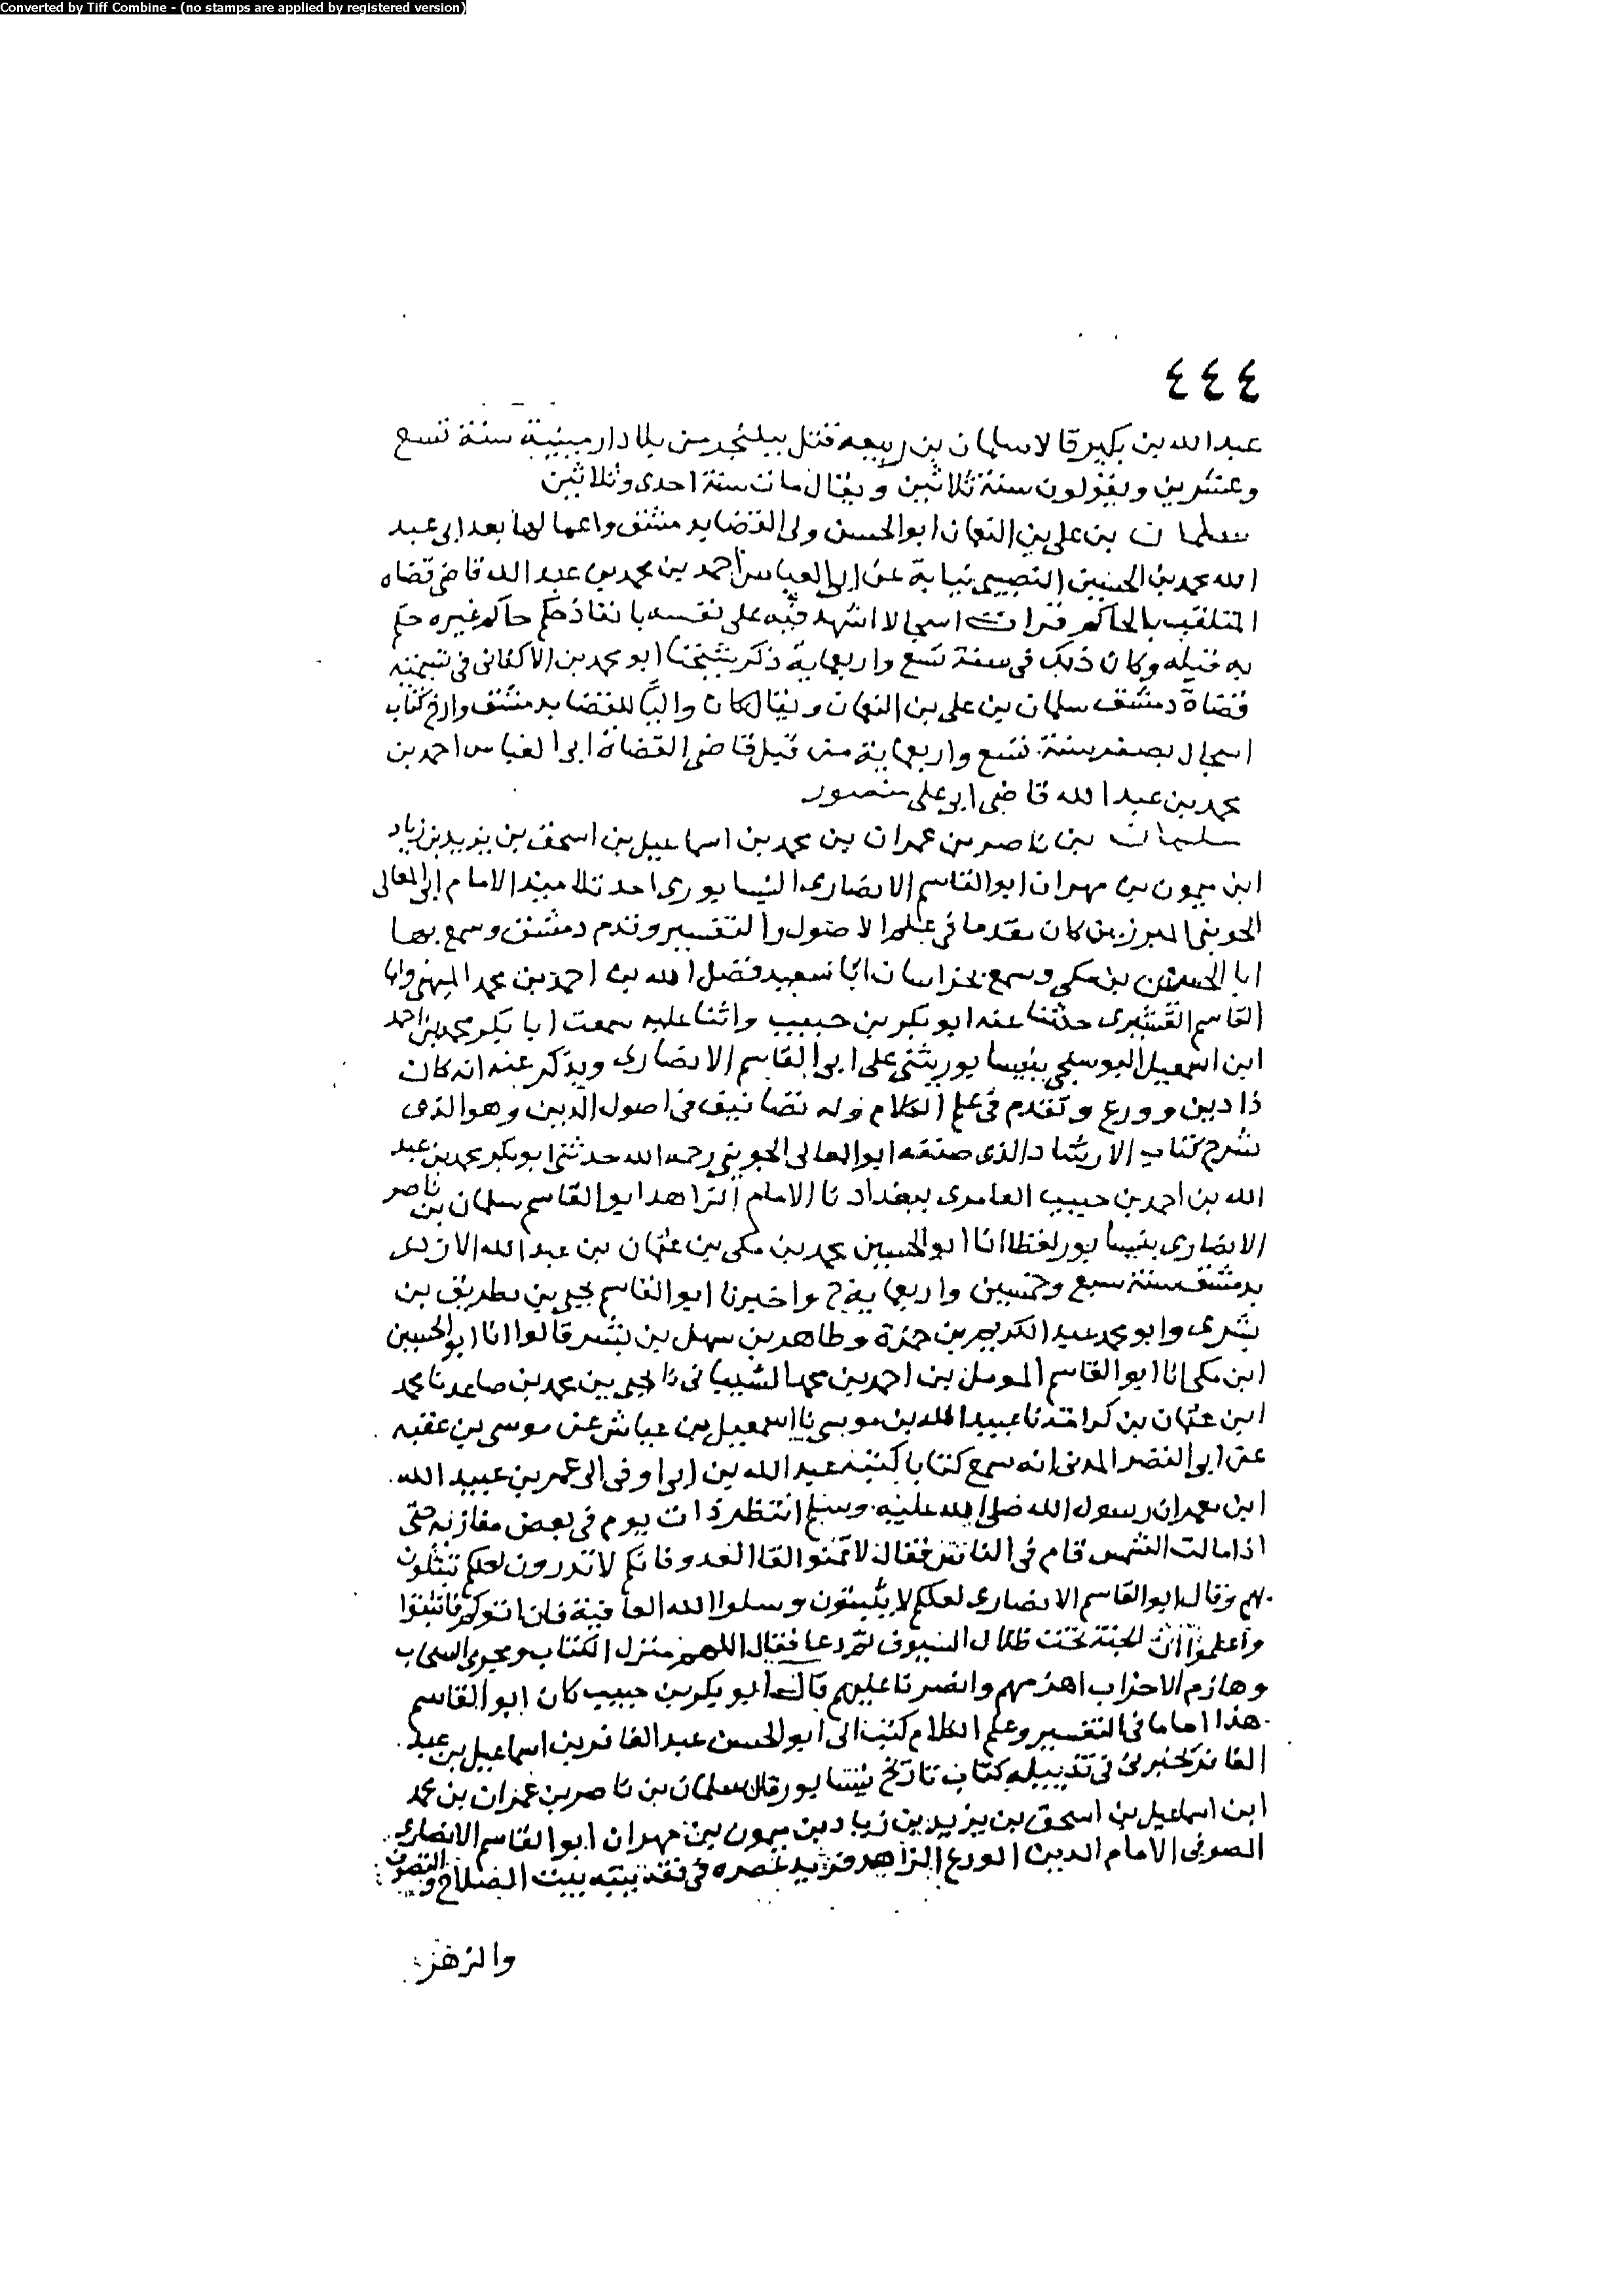 Converted by Tiff Combine - (no stamps are applied by registered version)
٤٤٤
عبد الله بن بكير قالا سلمان بن ربيعة قتل ببلنجر من بلاد ارمينية سنة تسع
وعشرين ويقولون سنة ثلاثين ويقال مات سنة احدى وثلاثين
سلمان بن علي بن النعمان ابو الحسن ولي القضا بدمشق واعمالها بعد ابي عبد
الله محمد بن الحسين النصيبي نيابة عن ابي العباس احمد بن محمد بن عبد الله قاضي قضاه
المتلقب بالحاكم قرات اسجالا اشهد فيه على نفسه بانفاذ حكم حاكم غيره حكم
به قبله وكان ذلك في سنة تسع واربعماية ذكر شيخنا ابو محمد بن الاكفاني في تسمية
قضاة دمشق سلمان بن علي بن النعمان ويقال كان واليا للقضا بدمشق وارخ كتاب
اسجال بصفر سنة تسع واربعماية من قبل قاضي القضاة ابي العباس احمد بن
محمد بن عبد الله قاضي ابي علي منصور
سلمان بن ناصر بن عمران بن محمد بن اسماعيل بن اسحق بن يزيد بن زياد
ابن ميمون بن مهران ابو القاسم الانصاري النيسابوري احد تلاميذ الامام ابي المعالي
الجويني المبرزين كان مقدما في علم الاصول والتفسير وقدم دمشق وسمع بها
ابا الحسين بن مكي وسمع بخراسان ابا سعيد فضل الله بن احمد بن محمد الميهني وابا
القاسم القشيري حدثنا عنه ابو بكر بن حبيب واثنا عليه سمعت ابا بكر محمد بن احمد
ابن اسمعيل البوسنجي بنيسابور يثني على ابي القاسم الانصاري ويذكر عنه انه كان
ذا دين وورع وتقدم في علم الكلام وله تصانيف في اصول الدين وهو الذي
شرح كتاب الارشاد الذي صنفه ابو المعالي الجويني رحمه الله حدثني ابو بكر محمد بن عبد
الله بن احمد بن حبيب العامري ببغداد نا الامام الزاهد ابو القاسم سلمان بن ناصر
الانصاري بنيسابور لفظا انا ابو الحسين محمد بن مكي بن عثمان بن عبد الله الازدي
بدمشق سنة سبع وخمسين واربعماية ح واخبرنا ابو القاسم يحيى بن بطريق بن
بشرى وابو محمد عبد الكريم بن حمزة وطاهر بن سهل بن بشر قالوا انا ابو الحسين
ابن مكي انا ابو القاسم المومل بن احمد بن محمد الشيباني نا يحيى بن محمد بن صاعد نا محمد
ابن عثمان بن كرامة نا عبيد الله بن موسى نا اسمعيل بن عياش عن موسى بن عقبه
عن ابي النضر المدني انه سمع كتابا كتبه عبد الله بن ابي اوفى الى عمر بن عبيد الله
ابن معمر ان رسول الله صلى الله عليه وسلم انتظر ذات يوم في بعض مغازيه حتى
اذا مالت الشمس قام في الناس فقال لا تمنوا لقا العدو فانكم لا تدرون لعلكم تبتلون
بهم وقال ابو القاسم الانصاري لعلكم لا يثبتون وسلوا الله العافية فان اتوكم فاثبتوا
واعلموا ان الجنة تحت ظلال السيوف ثم دعا فقال اللهم منزل الكتاب ومجري السحاب
وهازم الاحزاب اهزمهم وانصرنا عليهم قال ابو بكر بن حبيب كان ابو القاسم
هذا اماما في التفسير وعلم الكلام كتب الى ابو الحسن عبد الغافر بن اسماعيل بن عبد
الغافر يخبرني في تذييله كتاب تاريخ نيسابور قال سلمان بن ناصر بن عمران بن محمد
ابن اسماعيل بن اسحق بن يزيد بن زياد بن ميمون بن مهران ابو القاسم الانصاري
الصوفي الامام الدين الورع الزاهد فريد عصره في فنه بيته بيت الصلاح والتصوف
والزهد